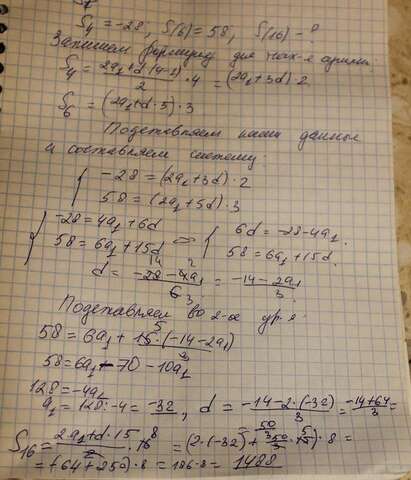 S₄ = -28, S(6) = 58, S(16) - ?
Запишем формулу для
S₄ = (2a₁ + d(4-1))/2 · 4 = (2a₁ + 3d)·2
S₆ = (2a₁ + d·5)·3
Подставляем наши данные
и составляем систему
{ -28 = (2a₁ + 3d)·2
58 = (2a₁ + 5d)·3
{ -28 = 4a₁ + 6d <=> { 6d = -28 - 4a₁
58 = 6a₁ + 15d 58 = 6a₁ + 15d.
d = (-28 - 4a₁)/6 = (-14 - 2a₁)/3.
Подставляем во 2-ое ур-е
58 = 6a₁ + 15·(-14-2a₁)/3
58 = 6a₁ - 70 - 10a₁
128 = -4a₁
a₁ = 128 : -4 = -32, d = (-14 - 2·(-32))/3 = (-14 + 64)/3 = 50/3
S₁₆ = (2a₁ + d·15)/2 · 16 = (2·(-32) + 50/3 · 15)·8 =
= (-64 + 250)·8 = 186·8 = 1488